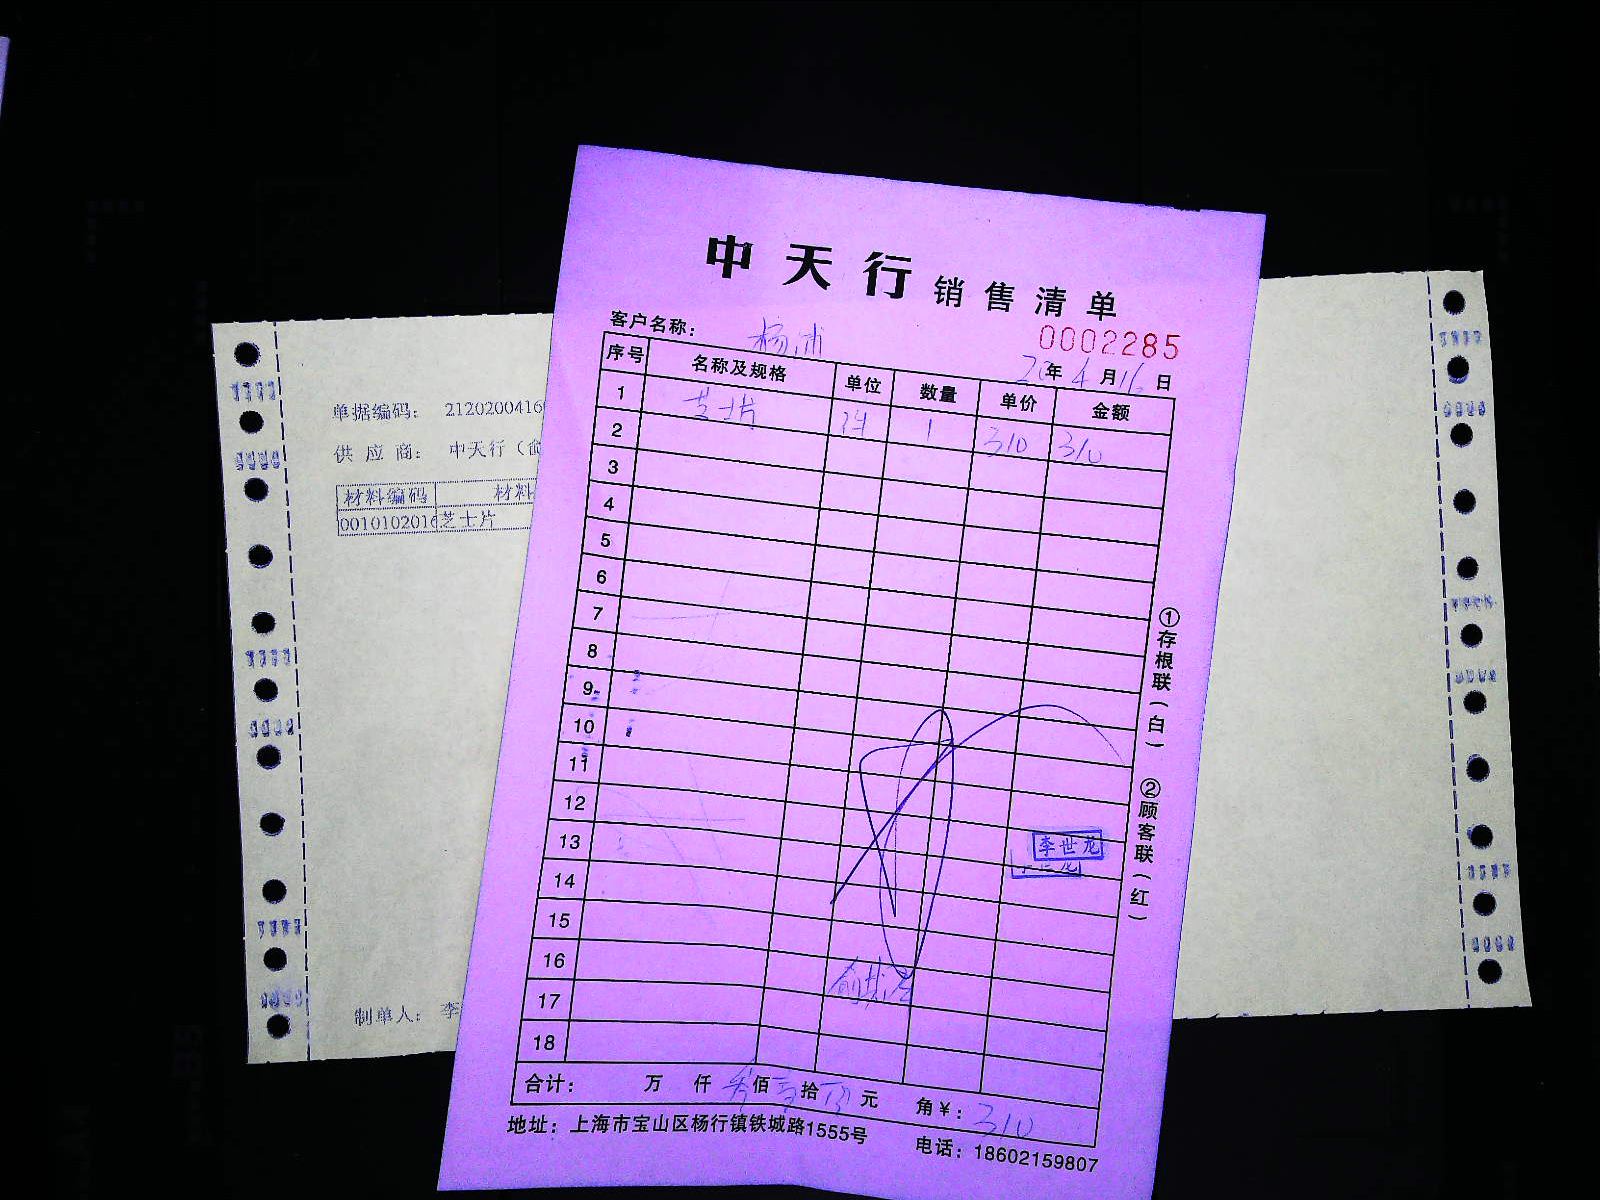 中天行销售清单
客户名称： 杨浦
0002285
20年4月16日
序号 名称及规格 单位 数量 单价 金额
1 芝士片 件 1 310 310
2
3
4
5
6
7
8
9
10
11
12
13
14
15
16
17
18
李世龙
合计： 万 仟 叁佰 壹拾 元 角￥：310
地址：上海市宝山区杨行镇铁城路1555号
电话：18602159807
①存根联（白）
②顾客联（红）
单据编码： 2120200416
供 应 商： 中天行（俞
材料编码 材料
0010102016 芝士片
制单人： 李